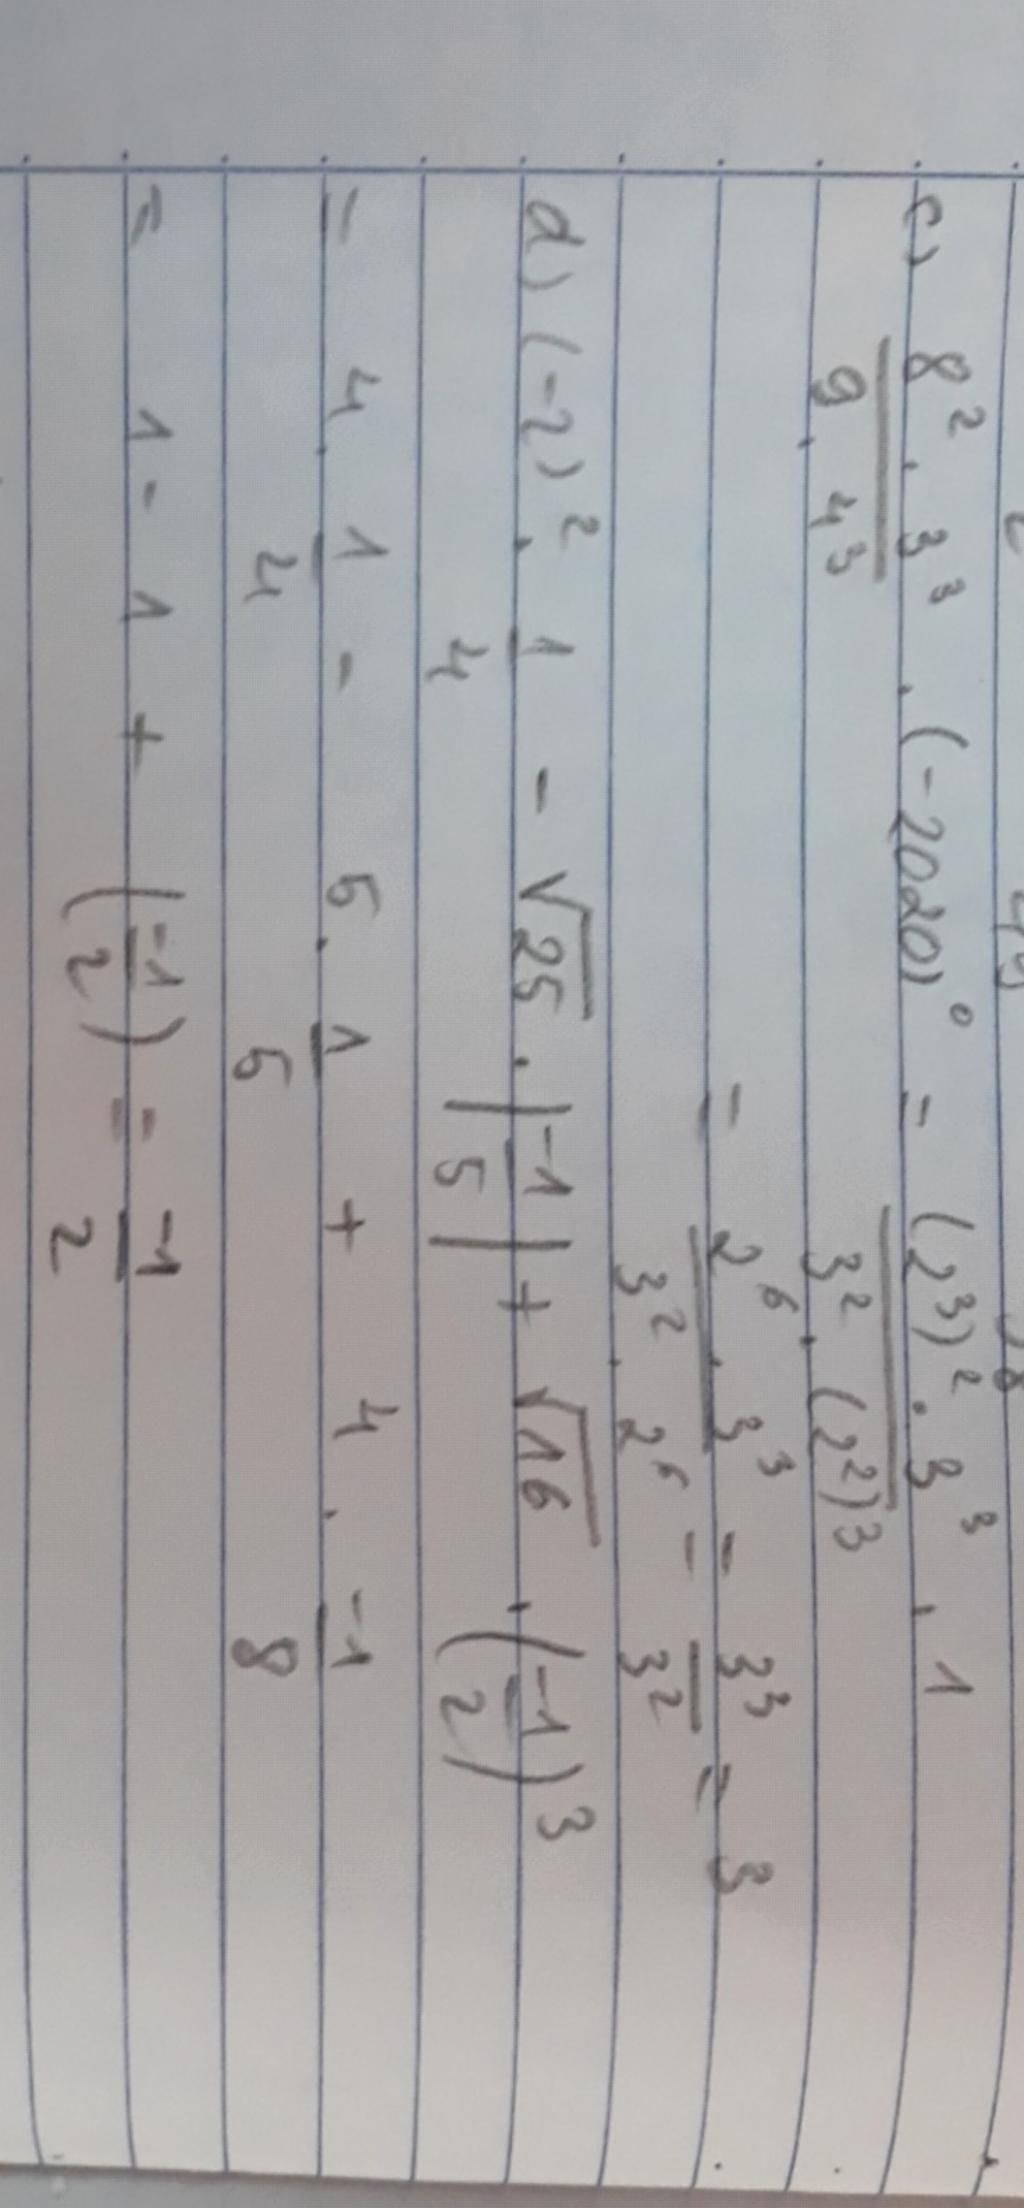 c) \frac{8^2 . 3^3}{9 . 4^3} . (-2020)^0 = \frac{(2^3)^2 . 3^3}{3^2 . (2^2)^3} . 1
= \frac{2^6 . 3^3}{3^2 . 2^6} = \frac{3^3}{3^2} = 3
d) (-2)^2 . \frac{1}{4} - \sqrt{25} . |\frac{-1}{5}| + \sqrt{16} . (\frac{-1}{2})^3
= 4 . \frac{1}{4} - 5 . \frac{1}{5} + 4 . \frac{-1}{8}
= 1 - 1 + (\frac{-1}{2}) = \frac{-1}{2}